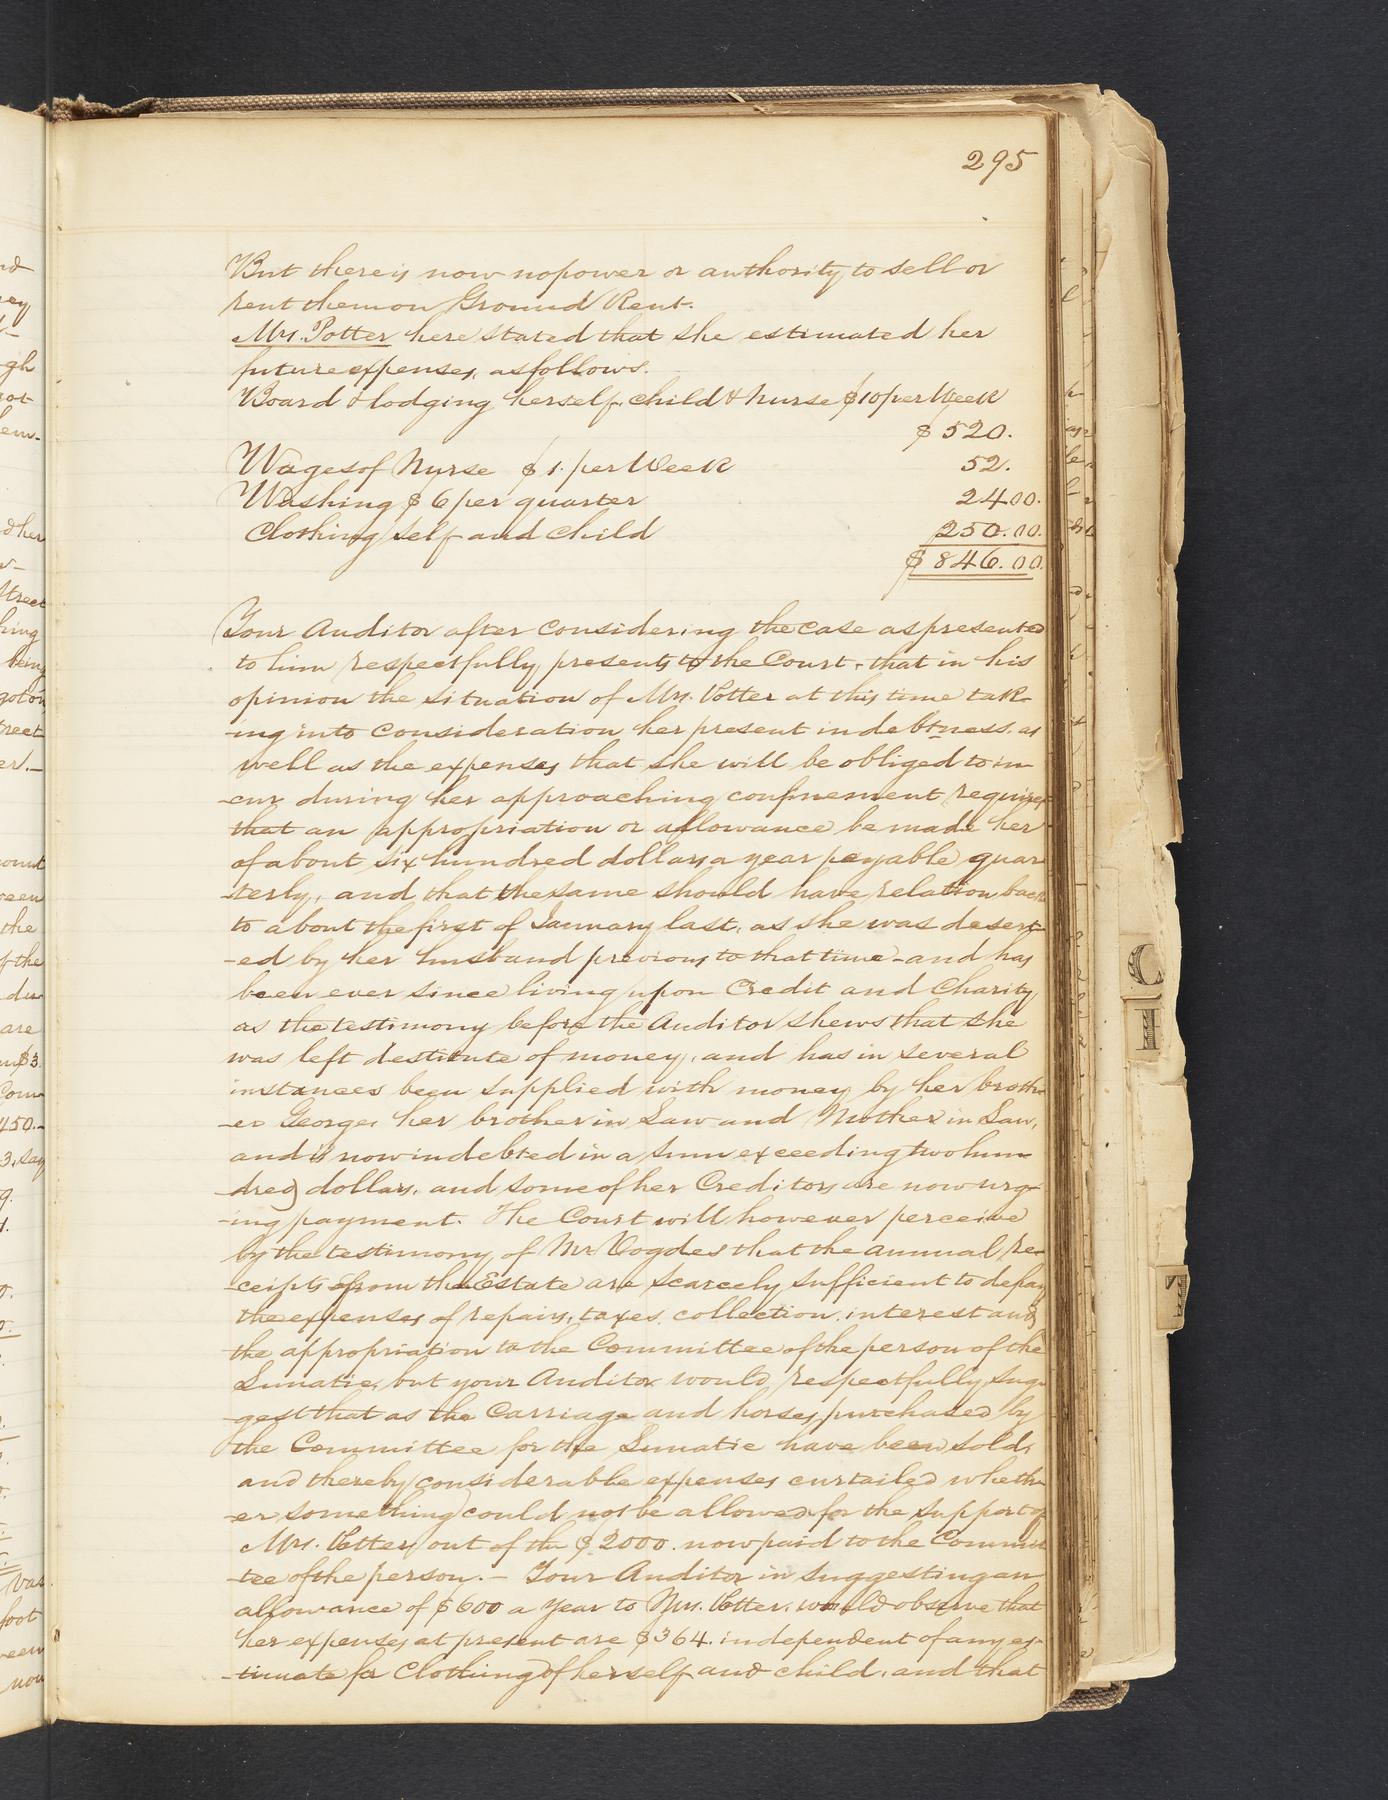 295
But there is now no power or authority to sell or
rent them on Ground Rent.
Mrs. Potter here stated that she estimated her
future expenses, as follows.
Board & lodging herself, child & Nurse $10 per Week
$520.
Wages of Nurse $1. per Week 52.
Washing $6 per quarter 24.00.
Clothing self and child 250.00.
$846.00.
Your Auditor after considering the case as presented
to him respectfully presents to the Court, that in his
opinion the situation of Mrs. Potter at this time tak-
-ing into consideration her present indebtness, as
well as the expenses that she will be obliged to in-
-cur during her approaching confinement requires
that an appropriation or allowance be made her
of about six hundred dollars a year payable quar
-terly, and that the same should have relation back
to about the first of January last, as she was desert-
-ed by her husband previous to that time - and has
been ever since living upon Credit and Charity
as the testimony before the Auditor shews that she
was left destitute of money, and has in several
instances been supplied with money by her broth-
-er George, her brother in Law and Mother in Law,
and is now indebted in a sum exceeding two hun-
-dred dollars, and some of her Creditors are now urg-
-ing payment. The Court will however perceive
by the testimony of Mr Vogdes that the annual re-
-ceipts from the Estate are scarcely sufficient to defray
the expenses of repairs, taxes, collection, interest and
the appropriation to the Committee of the person of the
Lunatic, but your Auditor would respectfully sug-
-gest that as the Carriage and horses, purchased by
the Committee for the Lunatic have been sold,
and thereby considerable expenses curtailed wheth-
-er something could not be allowed for the support of
Mrs. Potter out of the $2000. now paid to the Commit
-tee of the person. - Your Auditor in suggesting an
allowance of $600 a year to Mrs. Potter, would observe that
her expenses at present are $364. independent of any es-
-timate for Clothing of herself and child, and that